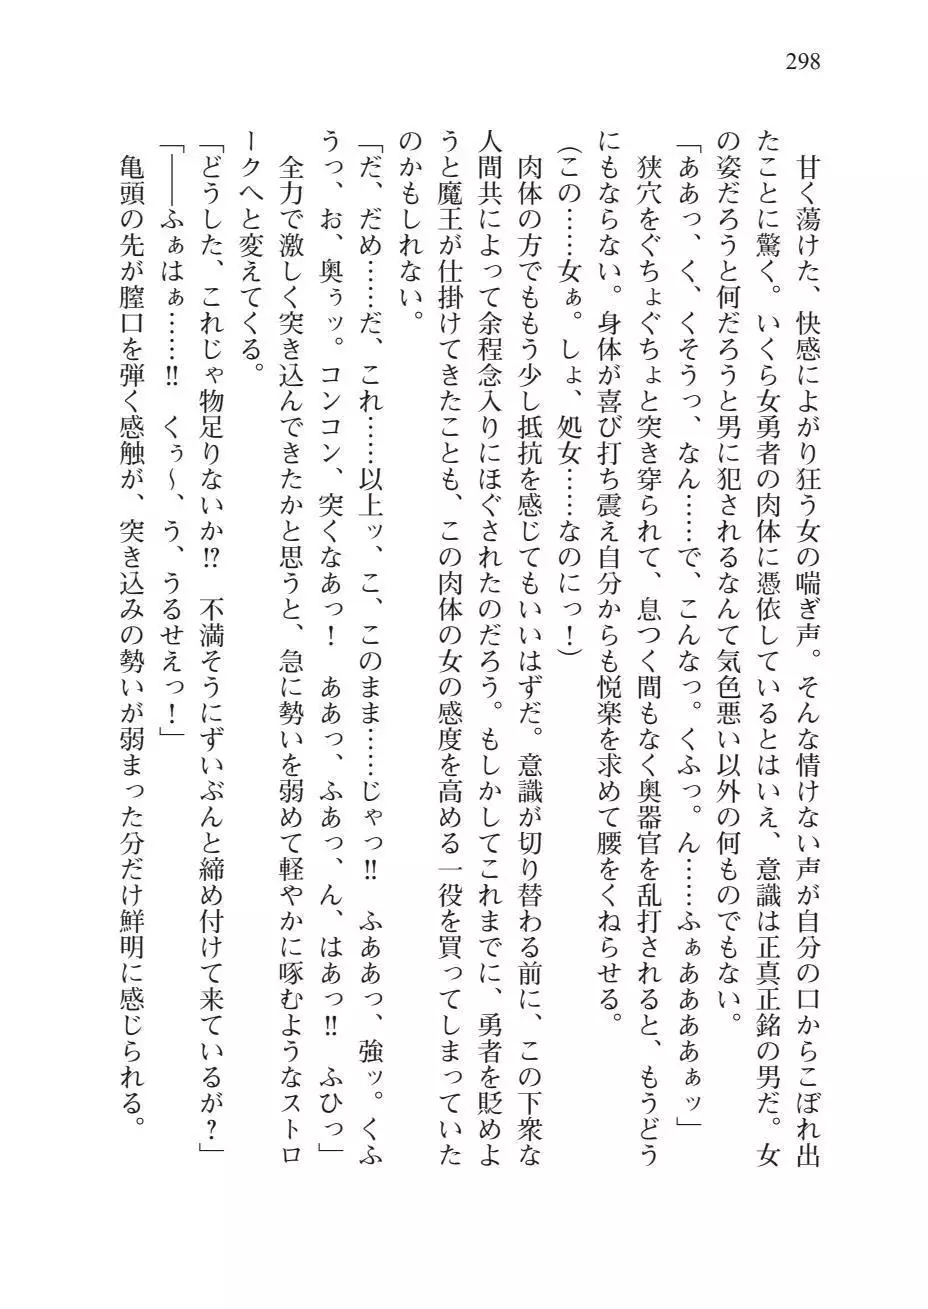 298
甘く蕩けた、快感によがり狂う女の喘ぎ声。そんな情けない声が自分の口からこぼれ出
たことに驚く。いくら女勇者の肉体に憑依しているとはいえ、意識は正真正銘の男だ。女
の姿だろうと何だろうと男に犯されるなんて気色悪い以外の何ものでもない。
「ああっ、く、くそうっ、なん……で、こんなっ。くふっ。ん……ふぁああああぁッ」
狭穴をぐちょぐちょと突き穿られて、息つく間もなく奥器官を乱打されると、もうどう
にもならない。身体が喜び打ち震え自分からも悦楽を求めて腰をくねらせる。
（この……女ぁ。しょ、処女……なのにっ！）
肉体の方でももう少し抵抗を感じてもいいはずだ。意識が切り替わる前に、この下衆な
人間共によって余程念入りにほぐされたのだろう。もしかしてこれまでに、勇者を貶めよ
うと魔王が仕掛けてきたことも、この肉体の女の感度を高める一役を買ってしまっていた
のかもしれない。
「だ、だめ……だ、これ……以上ッ、こ、このまま……じゃっ‼　ふああっ、強ッ。くふ
うっ、お、奥ぅッ。コンコン、突くなあっ！　ああっ、ふあっ、ん、はあっ‼　ふひっ」
全力で激しく突き込んできたかと思うと、急に勢いを弱めて軽やかに啄むようなストロ
ークへと変えてくる。
「どうした、これじゃ物足りないか⁉　不満そうにずいぶんと締め付けて来ているが？」
「――ふぁはぁ……‼　くぅ～、う、うるせえっ！」
亀頭の先が膣口を弾く感触が、突き込みの勢いが弱まった分だけ鮮明に感じられる。